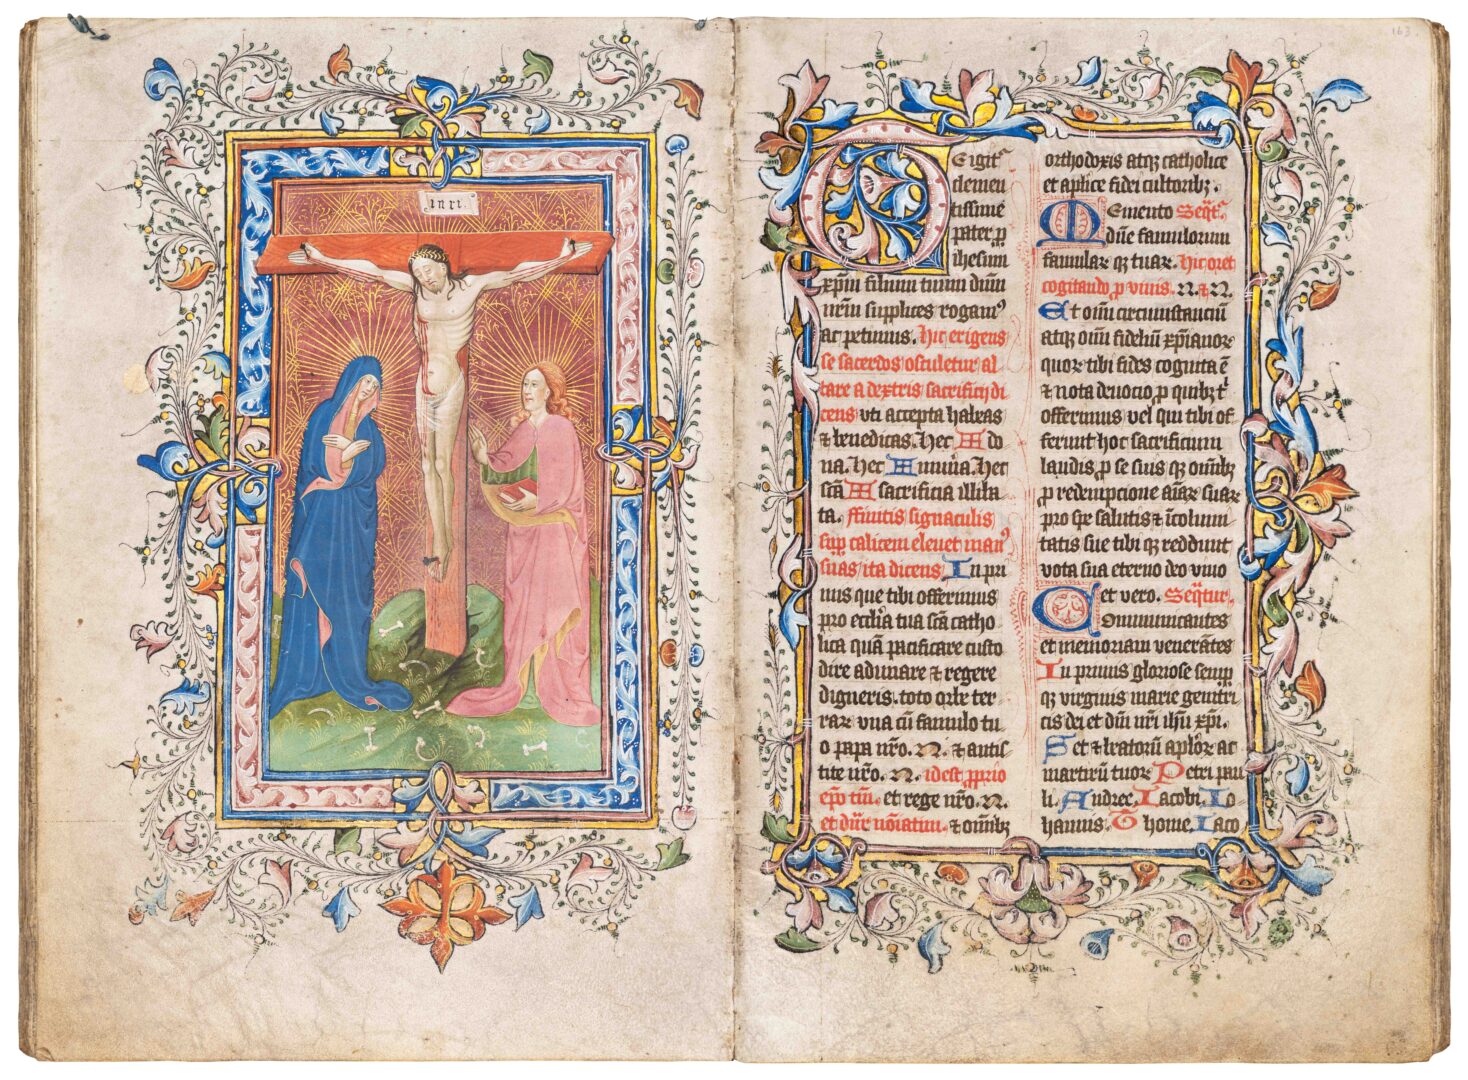 INRI
163
Te igit᷑
clemen
tissime
pater ꝑ
ihesum
xp̄m filium tuum dn̄m
nr̄m supplices rogam᷒
ac petimus. Hic erigens
se sacerdos osculetur al
tare a dextris sacrificij di
cens uti accepta habeas
⁊ benedicas. Hec ✠ do
na. Hec ✠ mun̄a. Hec
scā ✠ sacrificia illiba
ta. ffinitis signaculis
suꝑ calicem eleuet man᷒
suas ita dicens In pri
mis que tibi offerimus
pro eccl̄ia tua scā catho
lica quā pacificare custo
dire adunare ⁊ regere
digneris. toto orbe ter
raꝝ vna cū famulo tu
o papa nr̄o. N. ⁊ antis
tite nr̄o. N. idest ꝓprio
ep̄o tm̄. et rege nr̄o. N.
et dn̄r noīatim. ⁊ omībꝫ
orthodoxis atqꝫ catholice
et aplice fidei cultoribꝫ.
Memento Seqt᷑.
dn̄e famulorum
famulaꝝ qꝫ tuaꝝ. hic oret
cogitando ꝓ viuis. N. ⁊ N.
Et om̄i circumstanciū
atqꝫ om̄i fideliū xp̄ianoꝝ
quoꝝ tibi fides cognita ē
⁊ nota deuocio ꝓ quibꝫ t᷑
offerimus vel qui tibi of
ferunt hoc sacrificium
laudis ꝓ se suis qꝫ om̄ibꝫ
ꝓ redempcione aīaꝝ suaꝝ
pro spe salutis ⁊ īcolum
tatis sue tibi qꝫ reddunt
vota sua eterno deo viuo
et vero. Seqt᷑ur.
Communicantes
et memoriam venerātes
In primis gloriose semꝑ
qꝫ virginis marie genitri
cis dei et dn̄i nr̄i ih̄u xp̄i.
Set ⁊ beatorū ap̄loꝝ ac
martirū tuoꝝ Petri pau
li. Andree. Iacobi. Io
hannis. Thome. Iaco